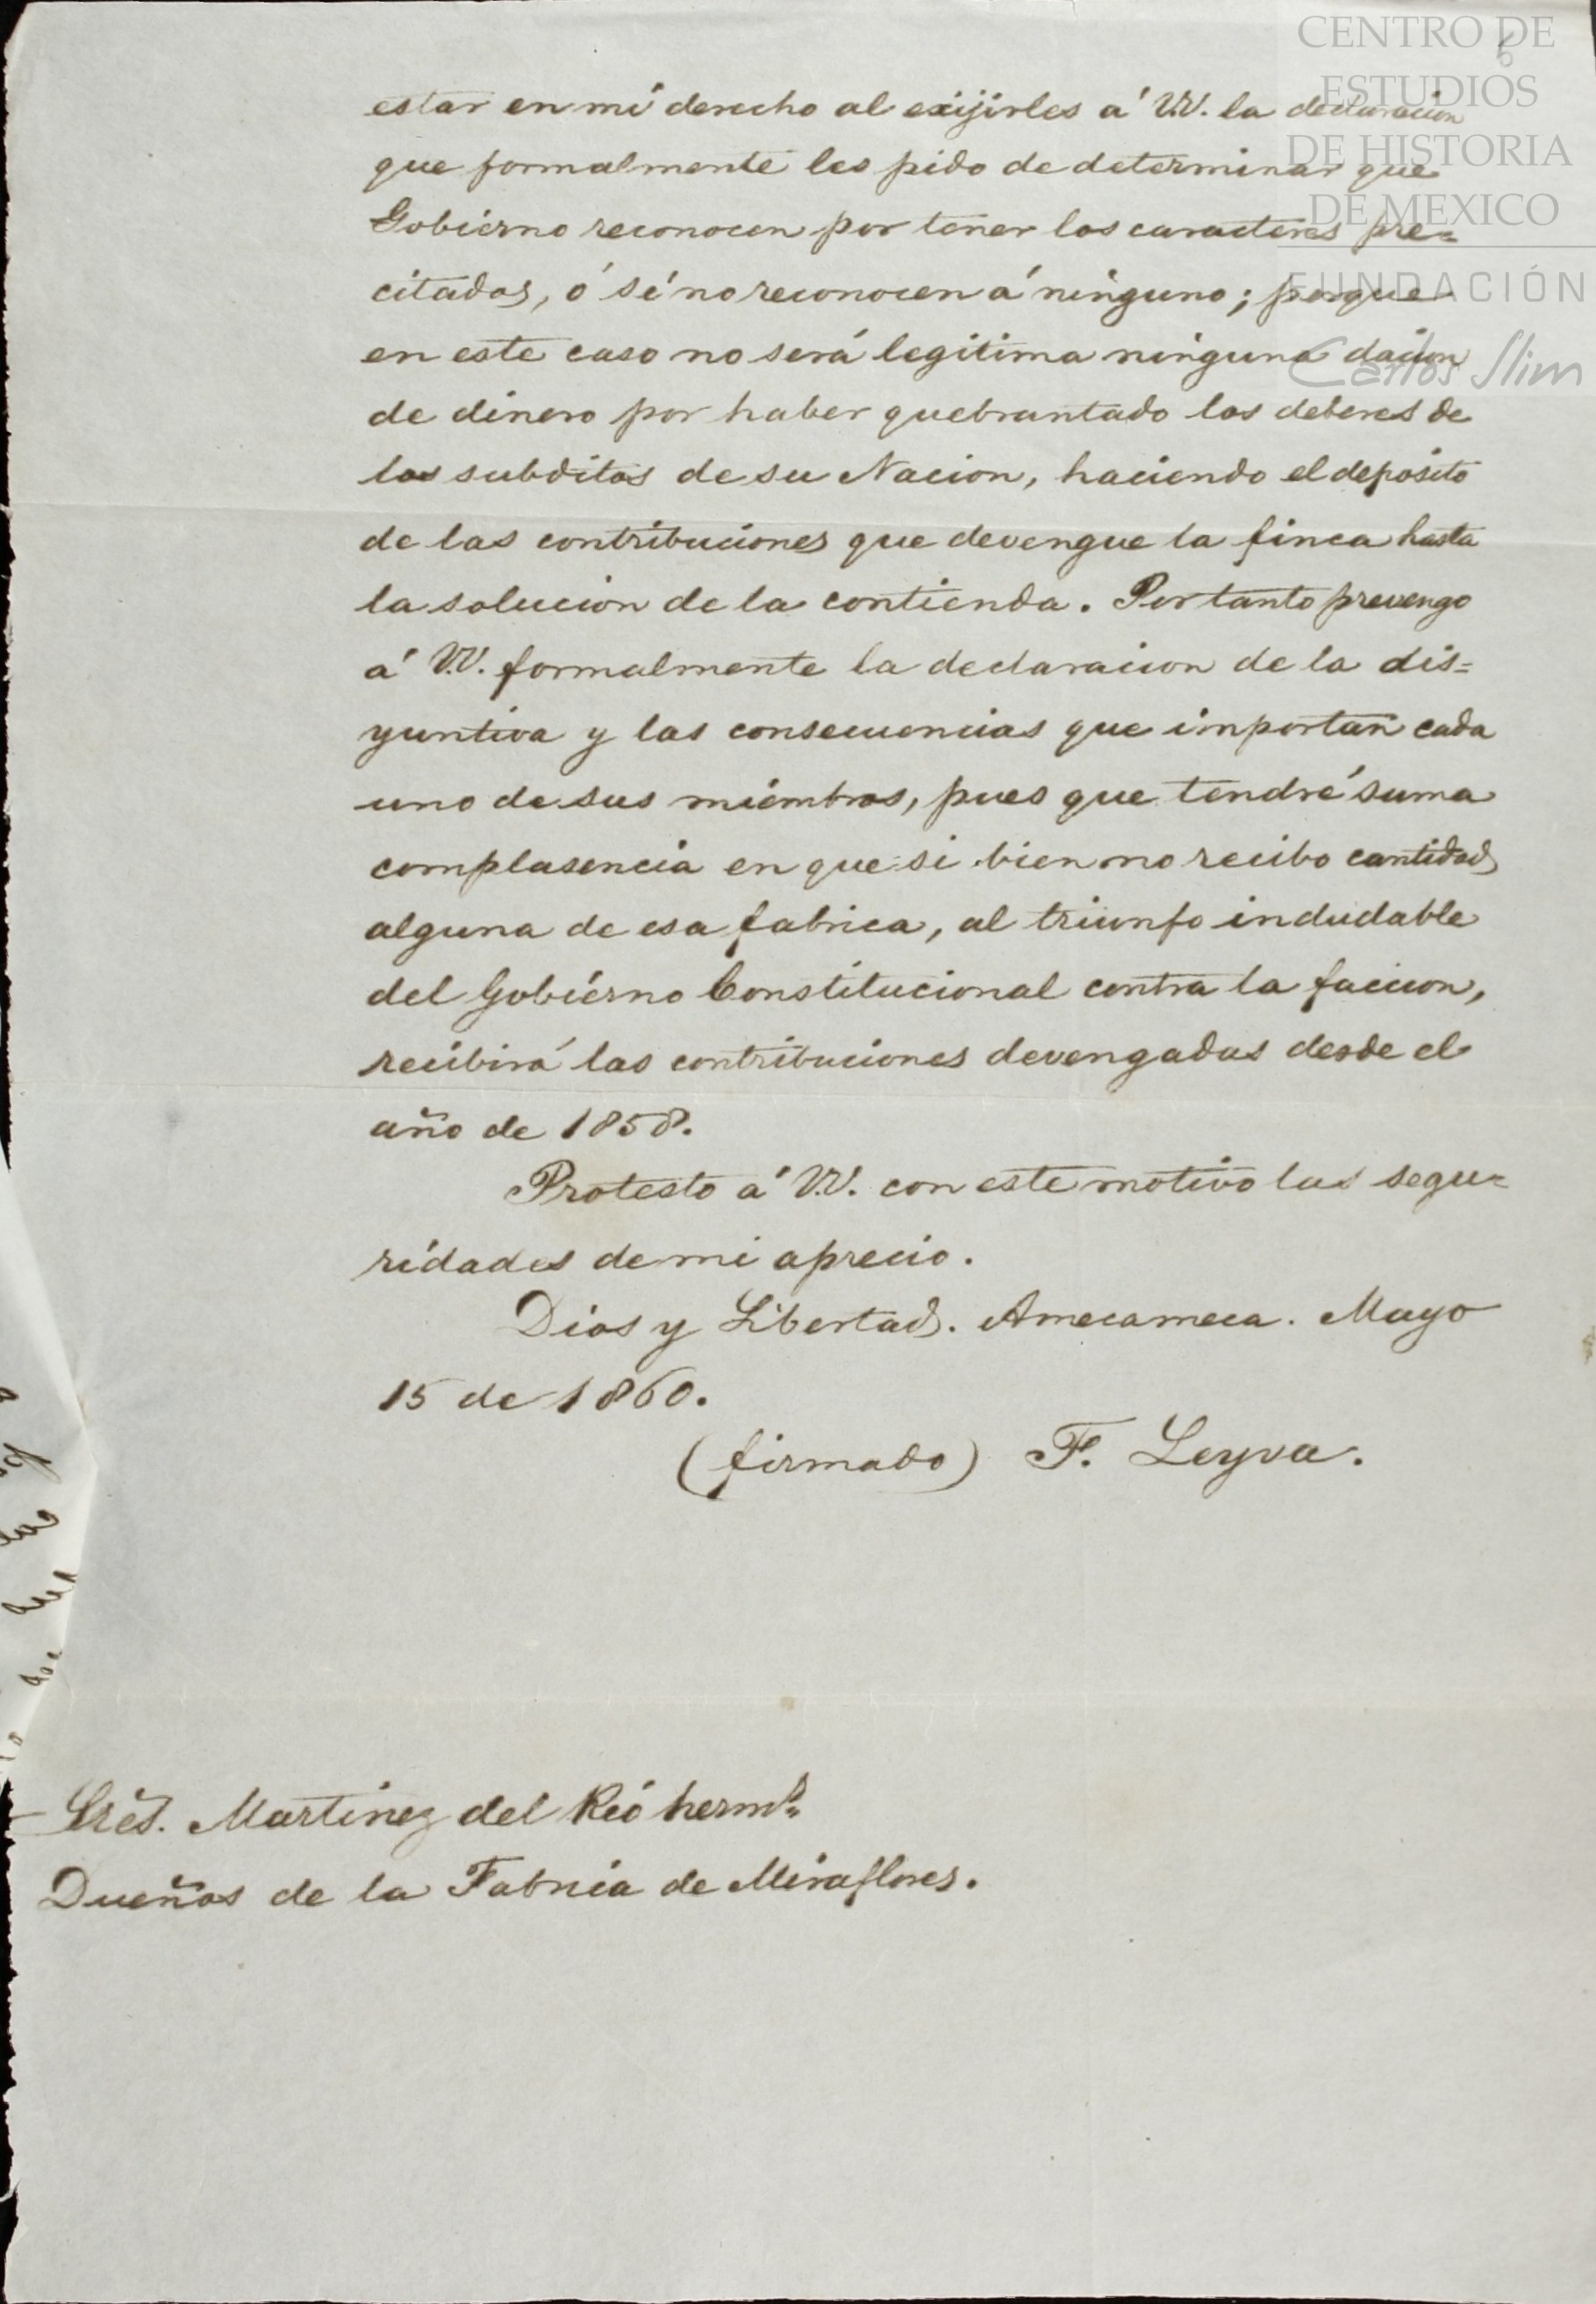 CENTRO DE
ESTUDIOS
DE HISTORIA
DE MEXICO
FUNDACIÓN
Carlos Slim
estar en mi derecho al exijirles á V.V. la declaracion
que formalmente les pido de determinar que
Gobierno reconocen por tener los caracteres pre=
citados, ó si no reconocen á ninguno; porque
en este caso no será legitima ninguna dacion
de dinero por haber quebrantado los deberes de
los subditos de su Nacion, haciendo el deposito
de las contribuciones que devengue la finca hasta
la solucion de la contienda. Por tanto prevengo
á V.V. formalmente la declaracion de la dis=
yuntiva y las consecuencias que importan cada
uno de sus miembros, pues que tendré suma
complasencia en que si bien no recibo cantidad
alguna de esa fabrica, al triunfo indudable
del Gobierno Constitucional contra la faccion,
recibirá las contribuciones devengadas desde el
año de 1858.
Protesto á V.V. con este motivo las segu=
ridades de mi aprecio.
Dios y Libertad. Amecameca. Mayo
15 de 1860.
(firmado) F. Leyva.
Sres. Martinez del Rio herms.
Dueños de la Fabrica de Miraflores.